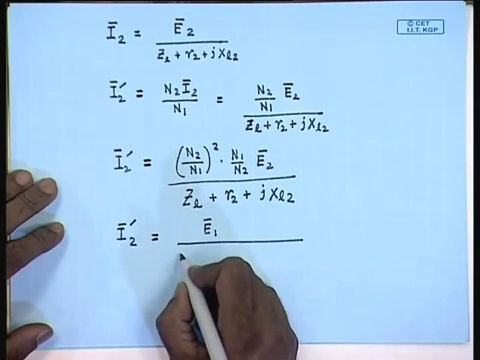 © CET
I.I.T. KGP
Ī₂ = Ē₂ / (Z_l + r₂ + j x_l2)
Ī₂′ = N₂Ī₂ / N₁ = (N₂/N₁) Ē₂ / (Z_l + r₂ + j x_l2)
Ī₂′ = (N₂/N₁)² · (N₁/N₂) Ē₂ / (Z_l + r₂ + j x_l2)
Ī₂′ = Ē₁